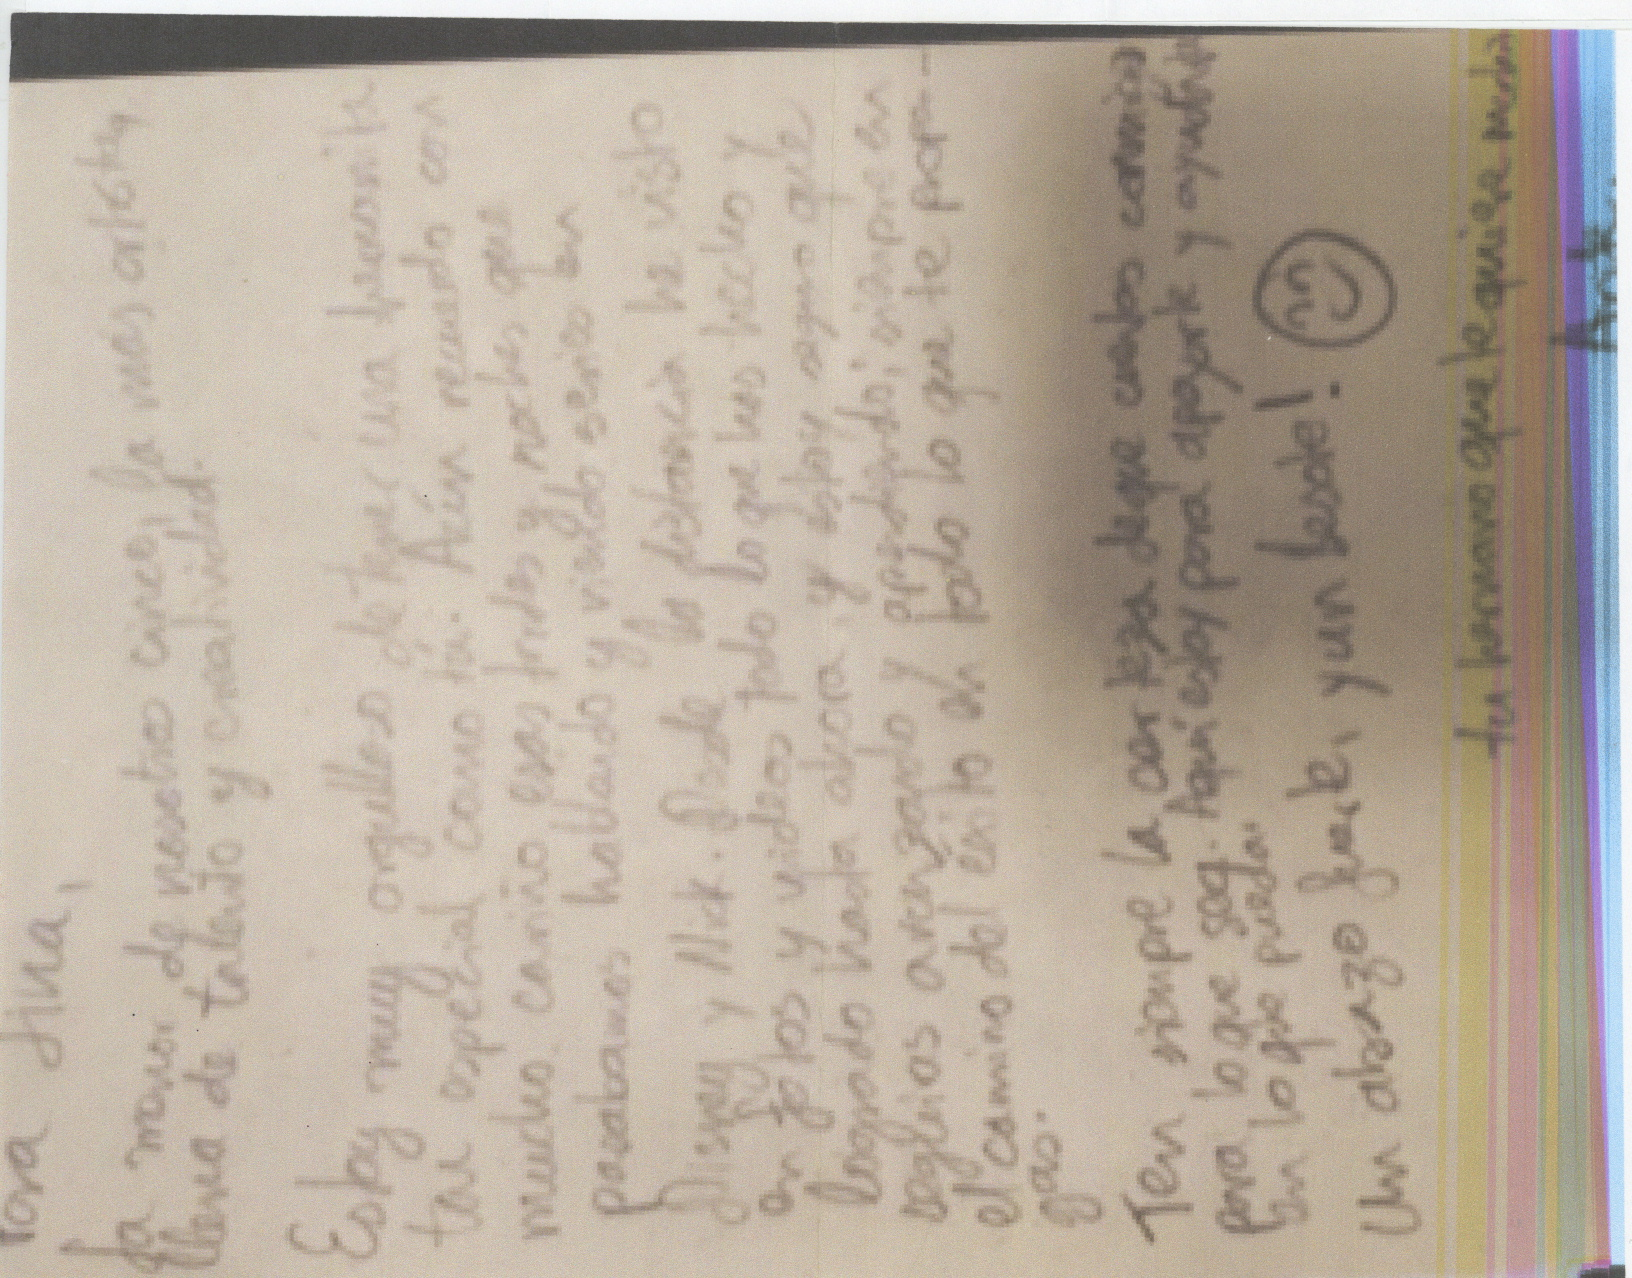 Para
La menor de nuestros cinco, la más artista,
llena de talento y creatividad.
Estoy muy orgulloso de tener una hermanita
tan especial como tú. Aún recuerdo con
mucho cariño esas tardes y noches que
pasabamos hablando y viendo series en
Disney y Nick. Desde la distancia he visto
en fotos y videos todo lo que has hecho y
logrado hasta ahora, y estoy seguro que
seguirás avanzando y aprendiendo; siempre en
el camino del éxito en todo lo que te propon-
gas.
Ten siempre la certeza de que cuentas conmigo
para lo que sea. Aquí estoy para apoyarte y ayudarte
en lo que pueda.
Un abrazo fuerte, y un besote!
tu hermano que te quiere mucho